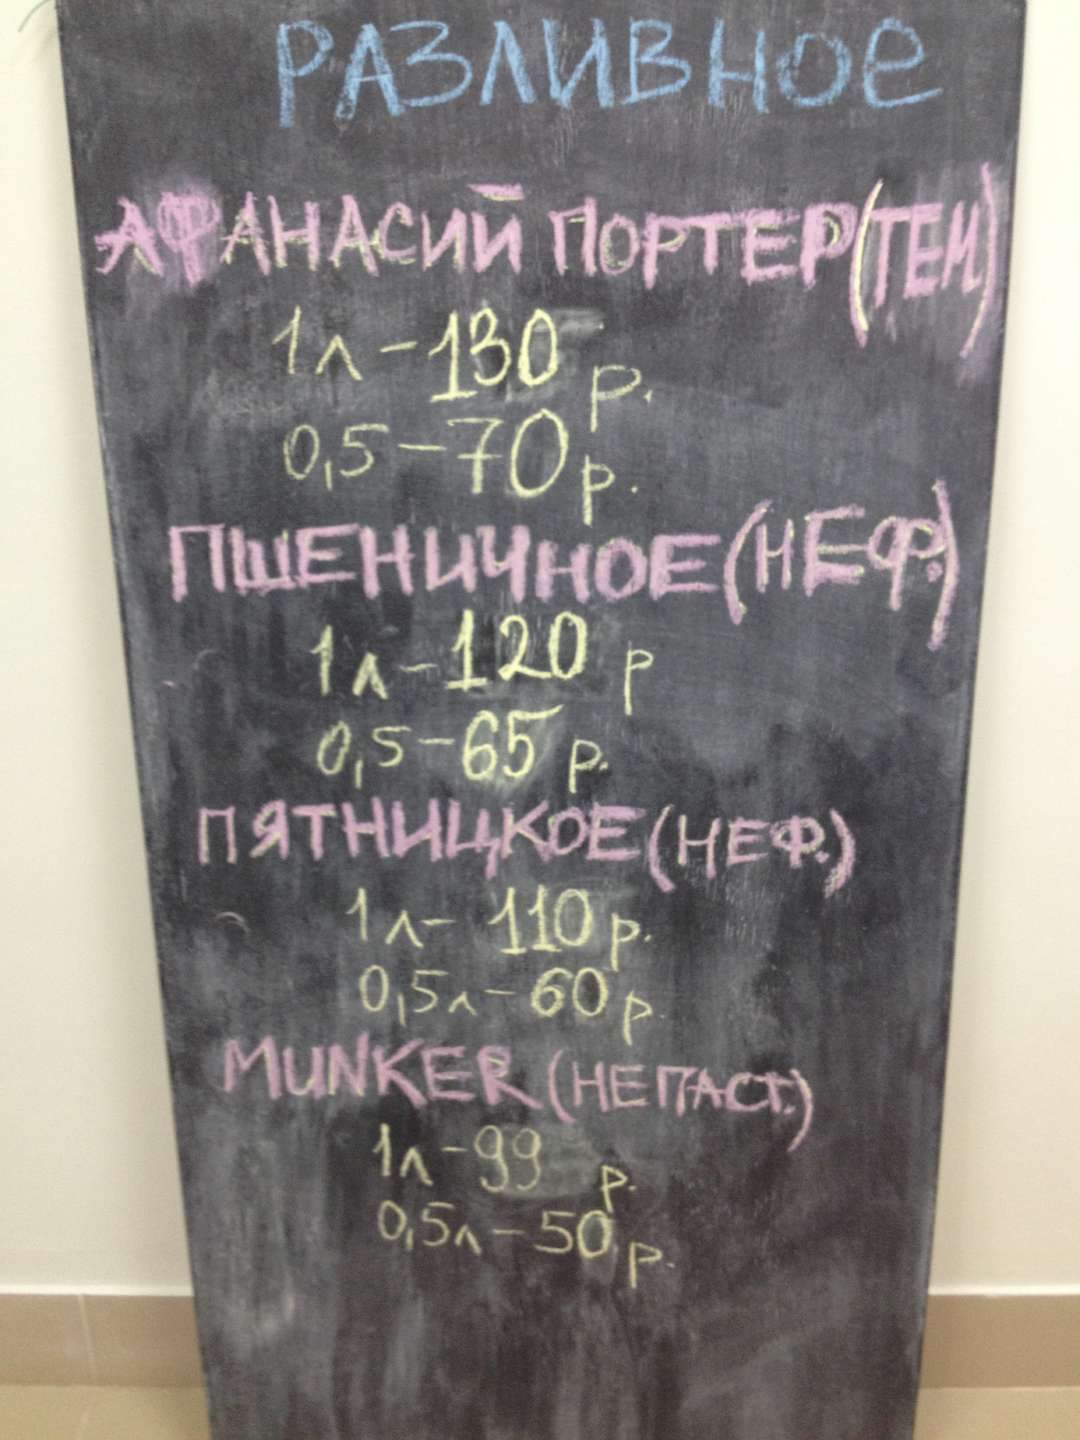 РАЗЛИВНОе
АФАНАСИЙ ПОРТЕР(ТЕМ)
1л-130 р.
0,5-70 р.
ПШЕНИЧНОЕ(НЕФ.)
1л-120 р
0,5-65 р.
ПЯТНИЦКОЕ(НЕФ.)
1л- 110 р.
0,5л-60 р.
MUNKER (НЕПАСТ.)
1л-99 р.
0,5л-50 р.